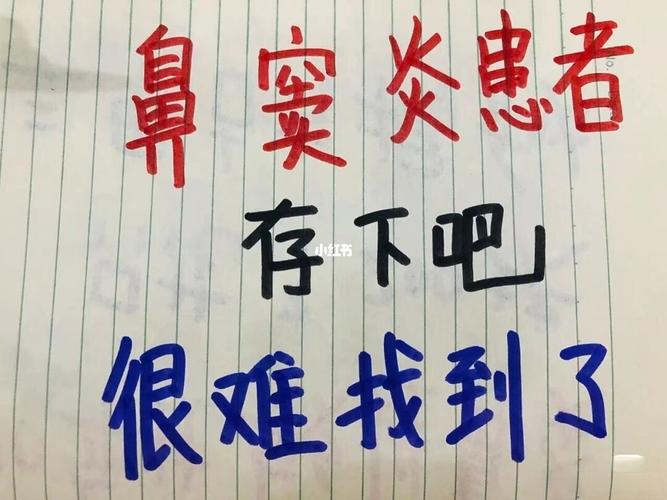 鼻窦炎患者
存下吧
小红书
很难找到了